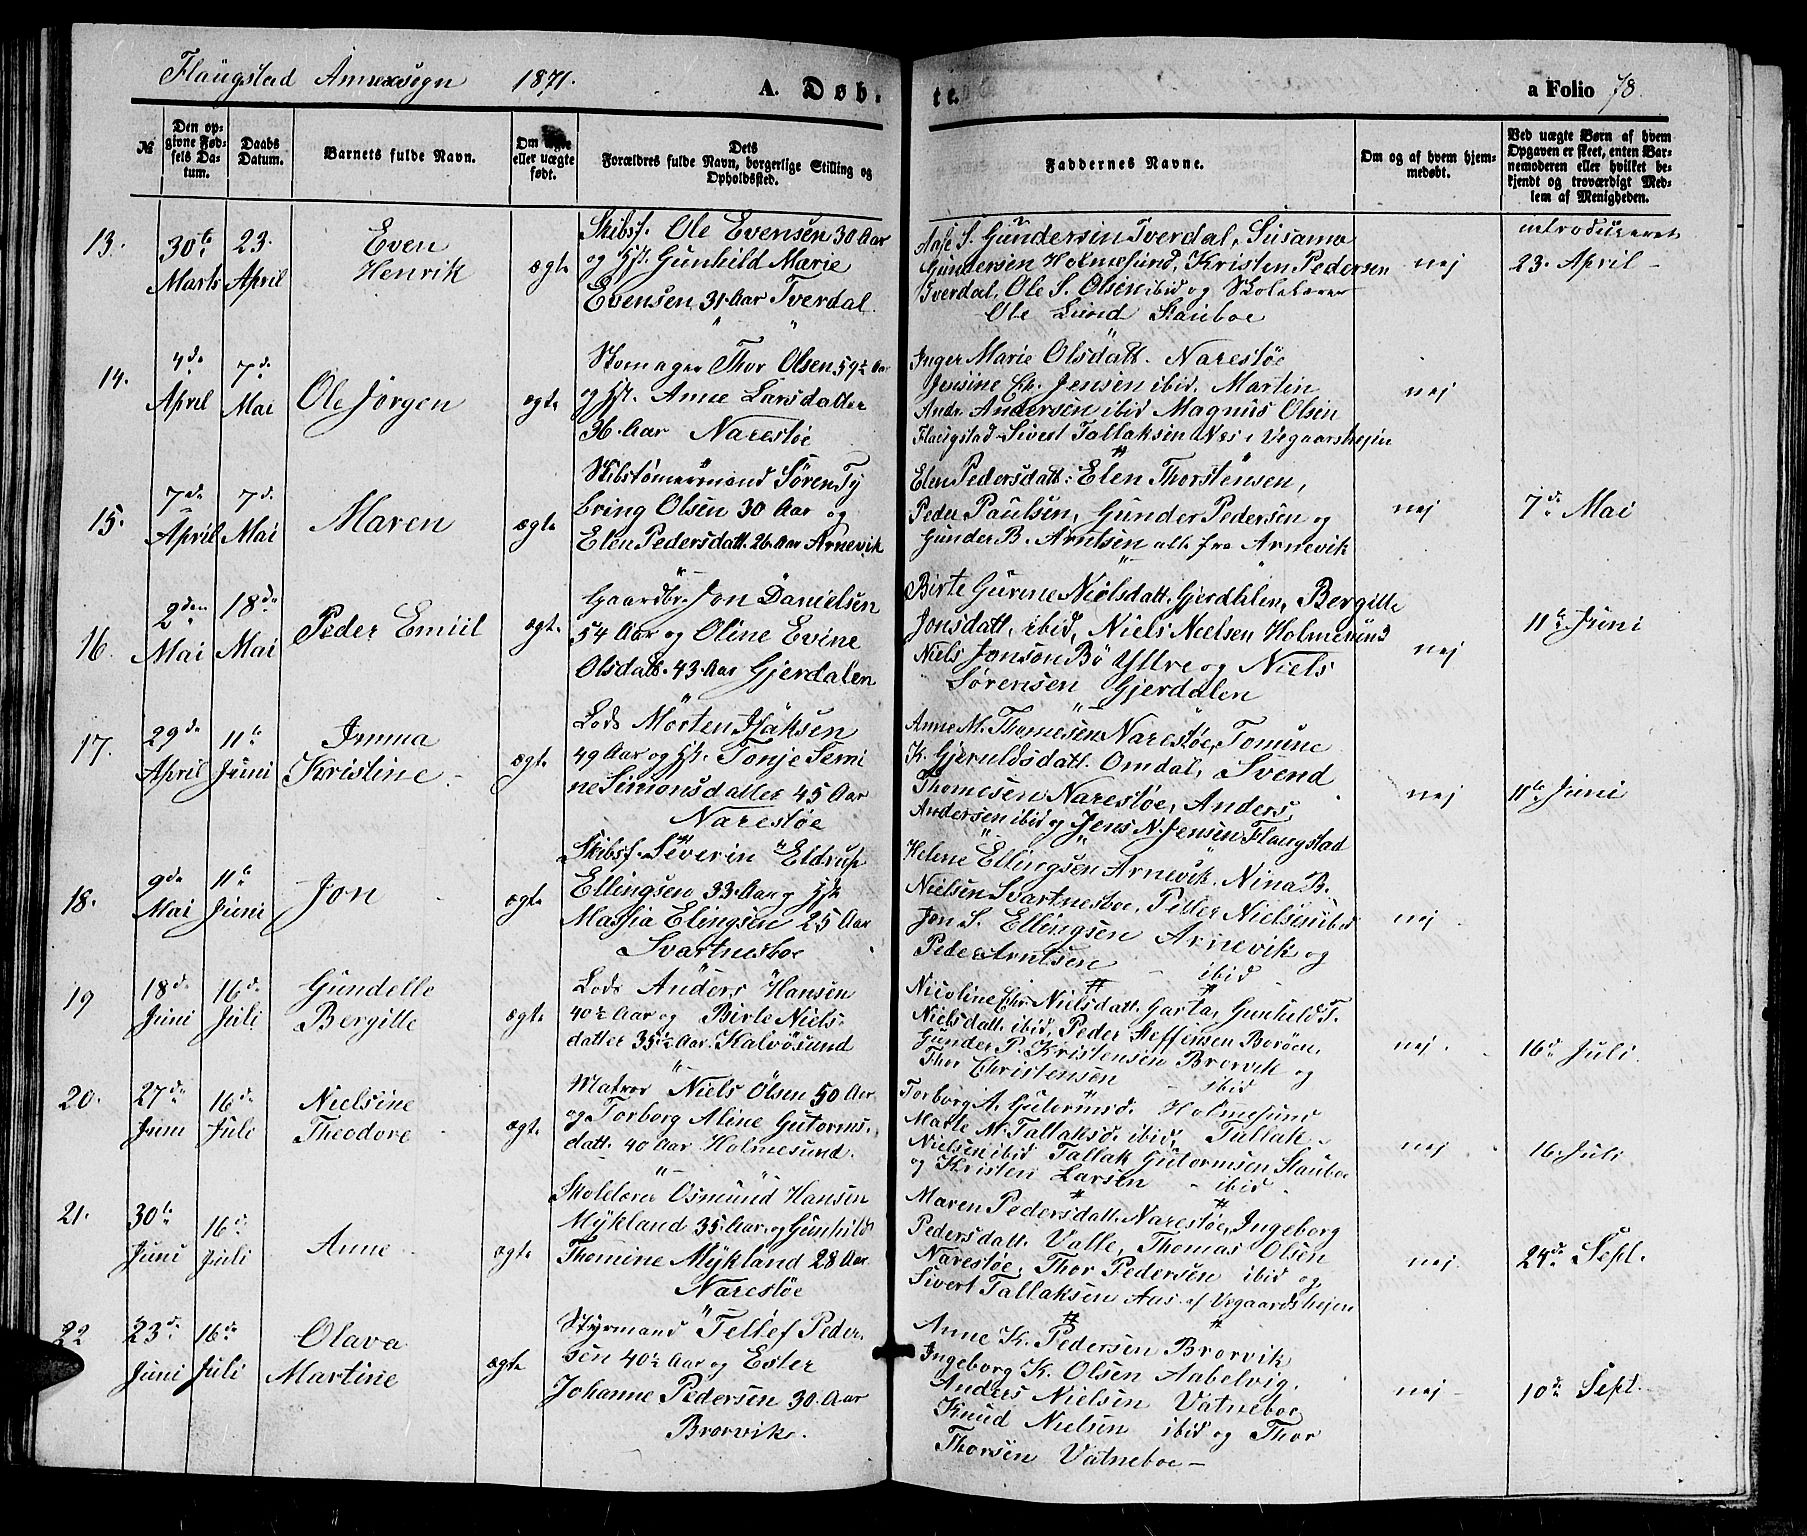 Flaugstad Annexsogn 1871. A. Døb- te. a Folio 78.
№
Den op-
givne Fød-
sels Da-
tum.
Daabs
Datum.
Barnets fulde Navn.
Om ægte
eller uægte
født.
Dets
Forældres fulde Navn, borgerlige Stilling og
Opholdssted.
Faddernes Navne.
Om og af hvem hjem-
medøbt.
Ved uægte Børn af hvem
Opgaven er skeet, enten Bar-
nemoderen eller hvilket be-
kjendt og troværdigt Med-
lem af Menigheden.
introduceret
13.
30te
Marts
23.
April
Even
Henrik
ægte
Skibsf. Ole Evensen 30 Aar
og Hst. Gunhild Marie
Evensen 31 Aar Tverdal.
Aase S. Gundersen Tverdal, Susanna
Gundersen Holmesund, Kristen Pedersen
Tverdal, Ole S. Olsen ibid og Skolelærer
Ole Lund Stauboe
nej
23. April -
14.
4de
April
7de
Mai
Ole Jørgen
ægte
Skomager Thor Olsen 59½ Aar
og Hst. Anne Larsdatter
36 Aar Narestøe
Inger Marie Olsdatt. Narestøe
Jensine Ch. Jensen ibid. Martin
Andr. Andersen ibid Magnus Olsen
Flaugstad - Sivert Tallaksen Næs i Vegaarshejen
nej
15.
7de
April
7de
Mai
Maren
ægte
Skibstømmermand Søren Ty
bring Olsen 30 Aar og
Elen Pedersdatt. 26 Aar Arnevik
Elen Pedersdatt: Elen Thorstensen,
Peder Paulsen, Gunder Pedersen og
Gunder B. Arntsen alle fra Arnevik
nej
7de Mai
16.
2den
Mai
18de
Mai
Peder Emiil
ægte
Gaardbr. Jon Danielsen
54 Aar og Oline Evine
Olsdatt. 43 Aar Gjerdalen
Birte Gurine Nielsdatt. Gjerdalen, Bergitte
Jonsdatt. ibid, Niels Nielsen Holmesund
Niels Jonsøn Bö Yttre og Niels
Sørensen Gjerdalen
nej
11te Juni
17.
29de
April
11te
Juni
Imma
Kristine
ægte
Lods Morten Isaksen
49 Aar og Hst. Tonje Semi
ne Simonsdatter 45 Aar
Narestøe
Anne M. Thomesen Narestøe, Tomine
K. Gjeruldsdatt. Omdal, Svend
Thomesen Narestøe, Anders
Andersen ibid og Jens N. Jensen Flaugstad
nej
11te Juni
18.
9de
Mai
11te
Juni
Jon
ægte
Skibsf. Severin Eldrup
Ellingsen 33 Aar og Hst
Masja Elingsen 25 Aar
Svartnesboe
Helene Ellingsen Arnevik. Nina B.
Nielsen Svartnesboe, Petter Nielsen ibid
Jon S. Ellingsen Arnevik og
Peder Arntsen ibid
nej
19
18de
Juni
16de
Juli
Gundelle
Bergitte
ægte
Lods Anders Hansen
40½ Aar og Birte Niels-
datter 35½ Aar. Kalvøsund
Nicoline Chr. Nielsdatt. Garta, Gunhild T.
Nielsdatt. ibid, Peder Steffensen Borøen,
Gunder P. Kristensen Brorvik og
Thor Christensen ibid
nej.
16de Juli.
20.
27de
Juni
16de
Juli
Nielsine
Theodore
ægte
Matros Niels Olsen 50 Aar
og Torborg Aline Gutorms-
datt. 40 Aar Holmesund.
Torborg A. Gutormsd. Holmesund
Marte M. Tallaksd. ibid, Tallak
Nielsen ibid Tallak Gutormsen Stauboe
og Kristen Larsen ibid
nej
16. Juli
21.
30te
Juni
16de
Juli
Anne
ægte
Skolelærer Osmund Hansen
Mykland 35 Aar og Gunhild
Thomine Mykland 28 Aar
Narestøe
Maren Pedersdatt. Narestøe, Ingeborg
Pedersdatt. Valle, Thomas Olsen
Narestøe, Thor Pedersen ibid og
Sivert Tallaksen Aas af Vegaardshejen
nej.
24de Sept.
22
23de
Juni
16de
Juli
Olava
Martine
ægte
Styrmand Tellef Peder-
sen 40½ Aar og Ester
Johanne Pedersen 30 Aar
Brorvik.
Anne K. Pedersen Brorvik
Ingeborg K. Olsen Aabelvig,
Anders Nielsen Vatneboe
Knud Nielsen ibid og Thor
Thorsen Vatneboe -
nej -
10de Sept.